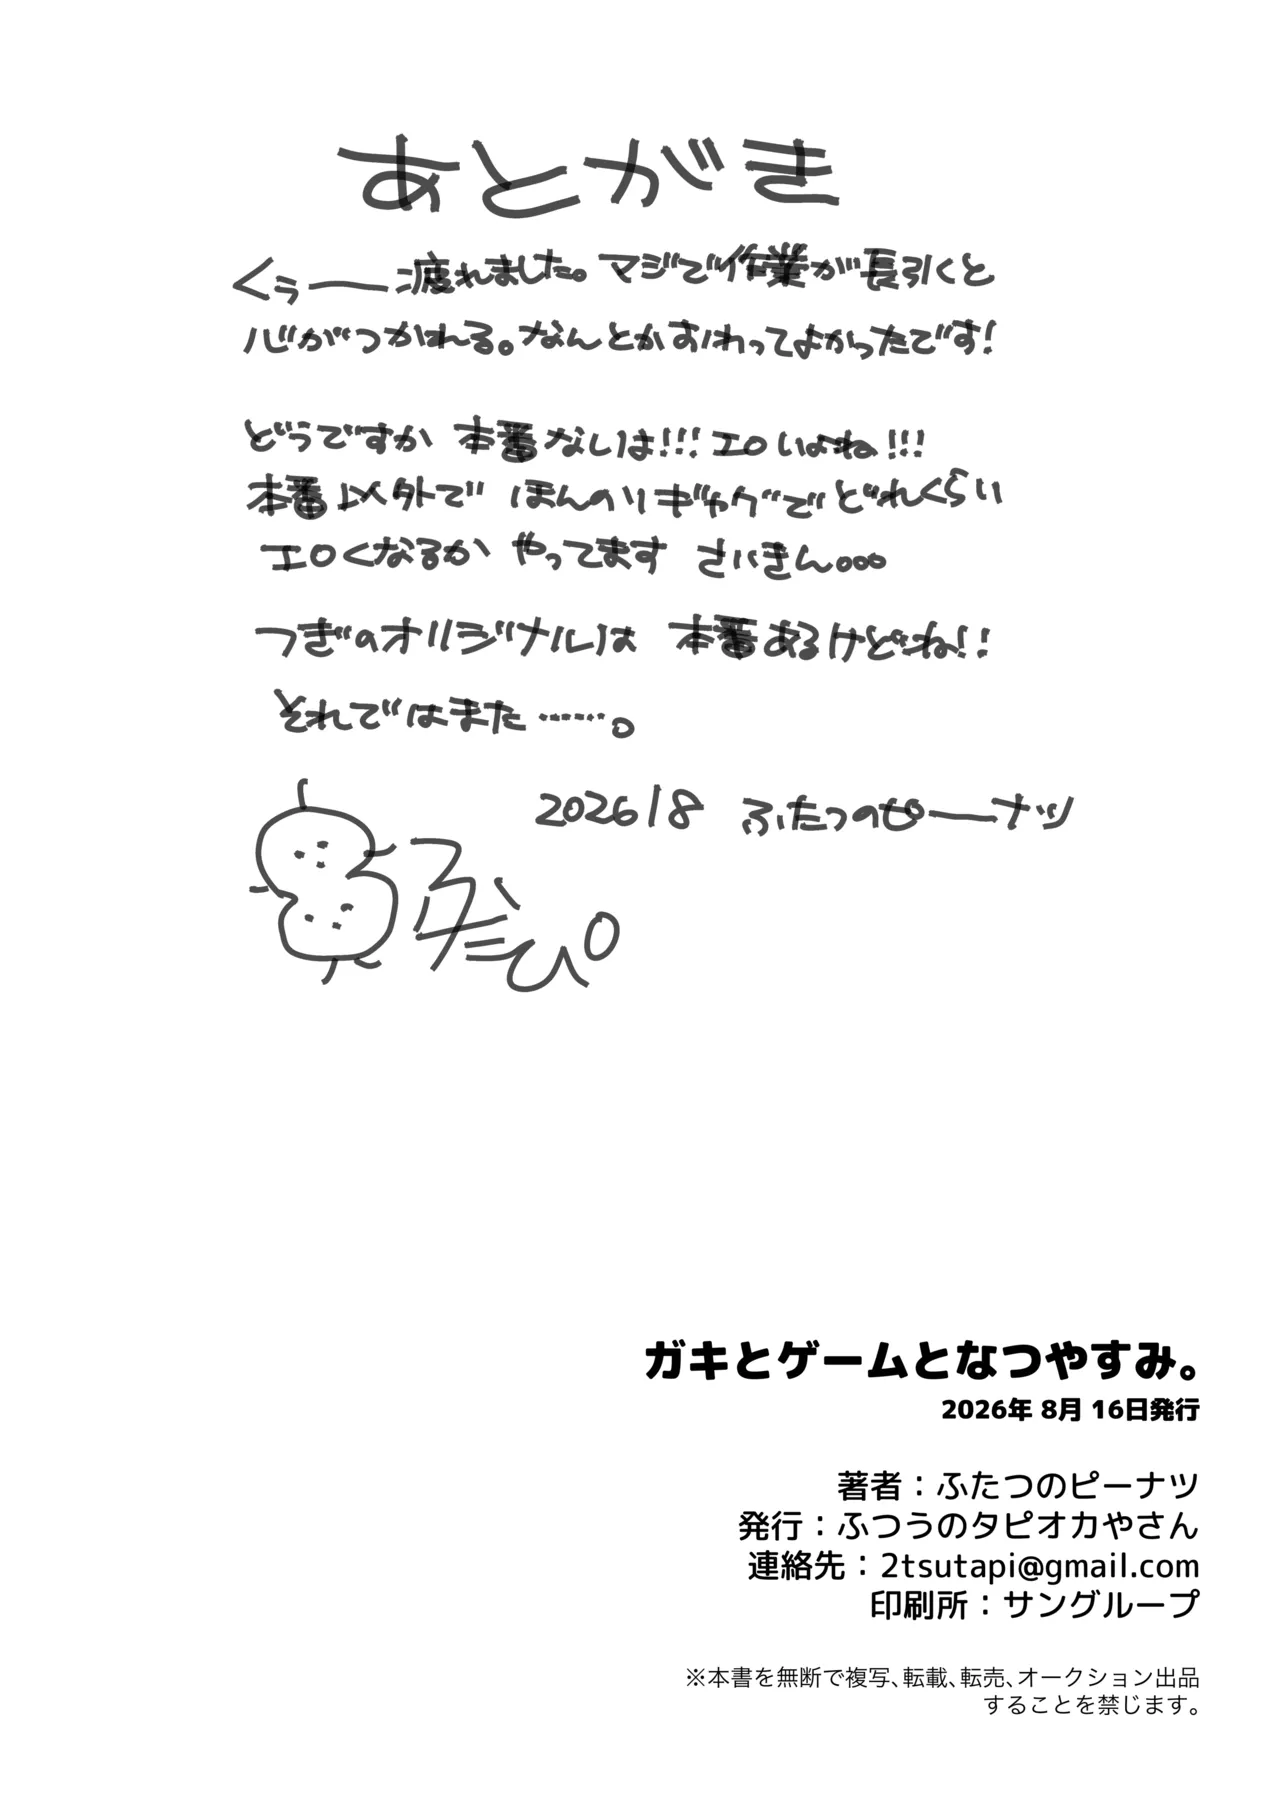 あとがき
くぅー疲れました。マジで作業が長引くと
心がつかれる。なんとかおわってよかったです!
どうですか 本番なしは!!! エロいよね!!!
本番以外で ほんのりギャグでどれくらい
エロくなるか やってます さいきん…
つぎのオリジナルは 本番あるけどね!!
それではまた……。
2026/8 ふたつのピーナツ
ふたぴ
ガキとゲームとなつやすみ。
2026年 8月 16日発行
著者：ふたつのピーナツ
発行：ふつうのタピオカやさん
連絡先：2tsutapi@gmail.com
印刷所：サングループ
※本書を無断で複写、転載、転売、オークション出品
することを禁じます。